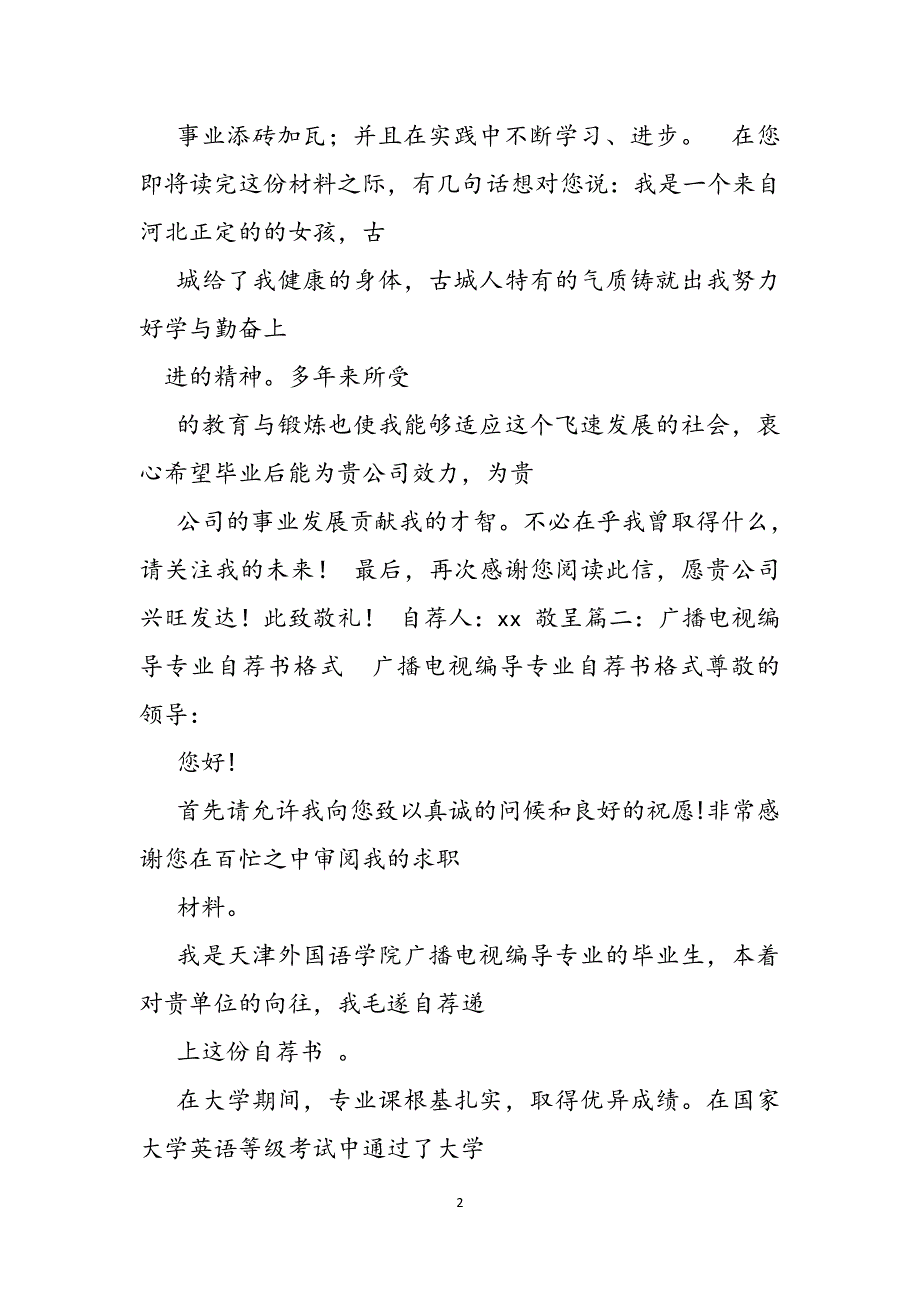 事业添砖加瓦；并且在实践中不断学习、进步。　在您
即将读完这份材料之际，有几句话想对您说：我是一个来自
河北正定的的女孩，古
城给了我健康的身体，古城人特有的气质铸就出我努力
好学与勤奋上
进的精神。多年来所受
的教育与锻炼也使我能够适应这个飞速发展的社会，衷
心希望毕业后能为贵公司效力，为贵
公司的事业发展贡献我的才智。不必在乎我曾取得什么，
请关注我的未来！ 最后，再次感谢您阅读此信，愿贵公司
兴旺发达！此致敬礼！ 自荐人：xx 敬呈篇二：广播电视编
导专业自荐书格式　广播电视编导专业自荐书格式尊敬的
领导：
您好！
首先请允许我向您致以真诚的问候和良好的祝愿!非常感
谢您在百忙之中审阅我的求职
材料。
我是天津外国语学院广播电视编导专业的毕业生，本着
对贵单位的向往，我毛遂自荐递
上这份自荐书 。
在大学期间，专业课根基扎实，取得优异成绩。在国家
大学英语等级考试中通过了大学
2